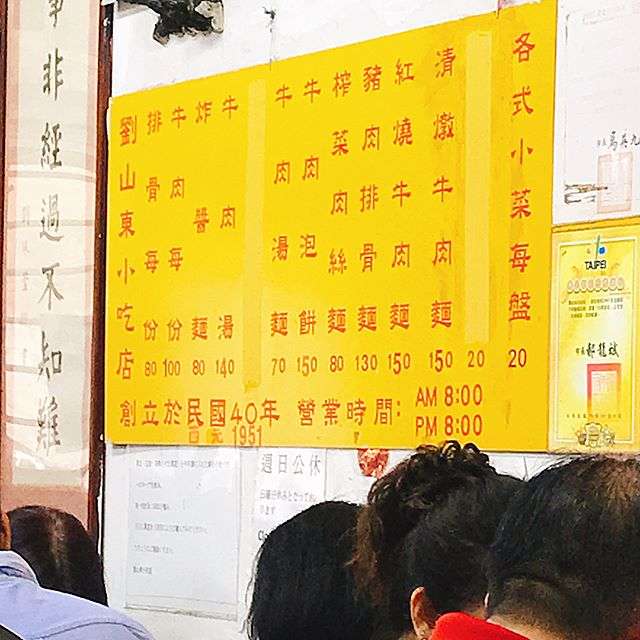 各式小菜每盤 20
20
清燉牛肉麵 150
紅燒牛肉麵 150
豬肉排骨麵 130
榨菜肉絲麵 80
牛肉泡餅 150
牛肉湯麵 70
牛肉湯 140
炸醬麵 80
牛肉每份 100
排骨每份 80
劉山東小吃店
創立於民國40年 營業時間: AM 8:00
西元 1951 PM 8:00
事非經過不知難
馬英九
TAIPEI
市長 郝龍斌
週日公休